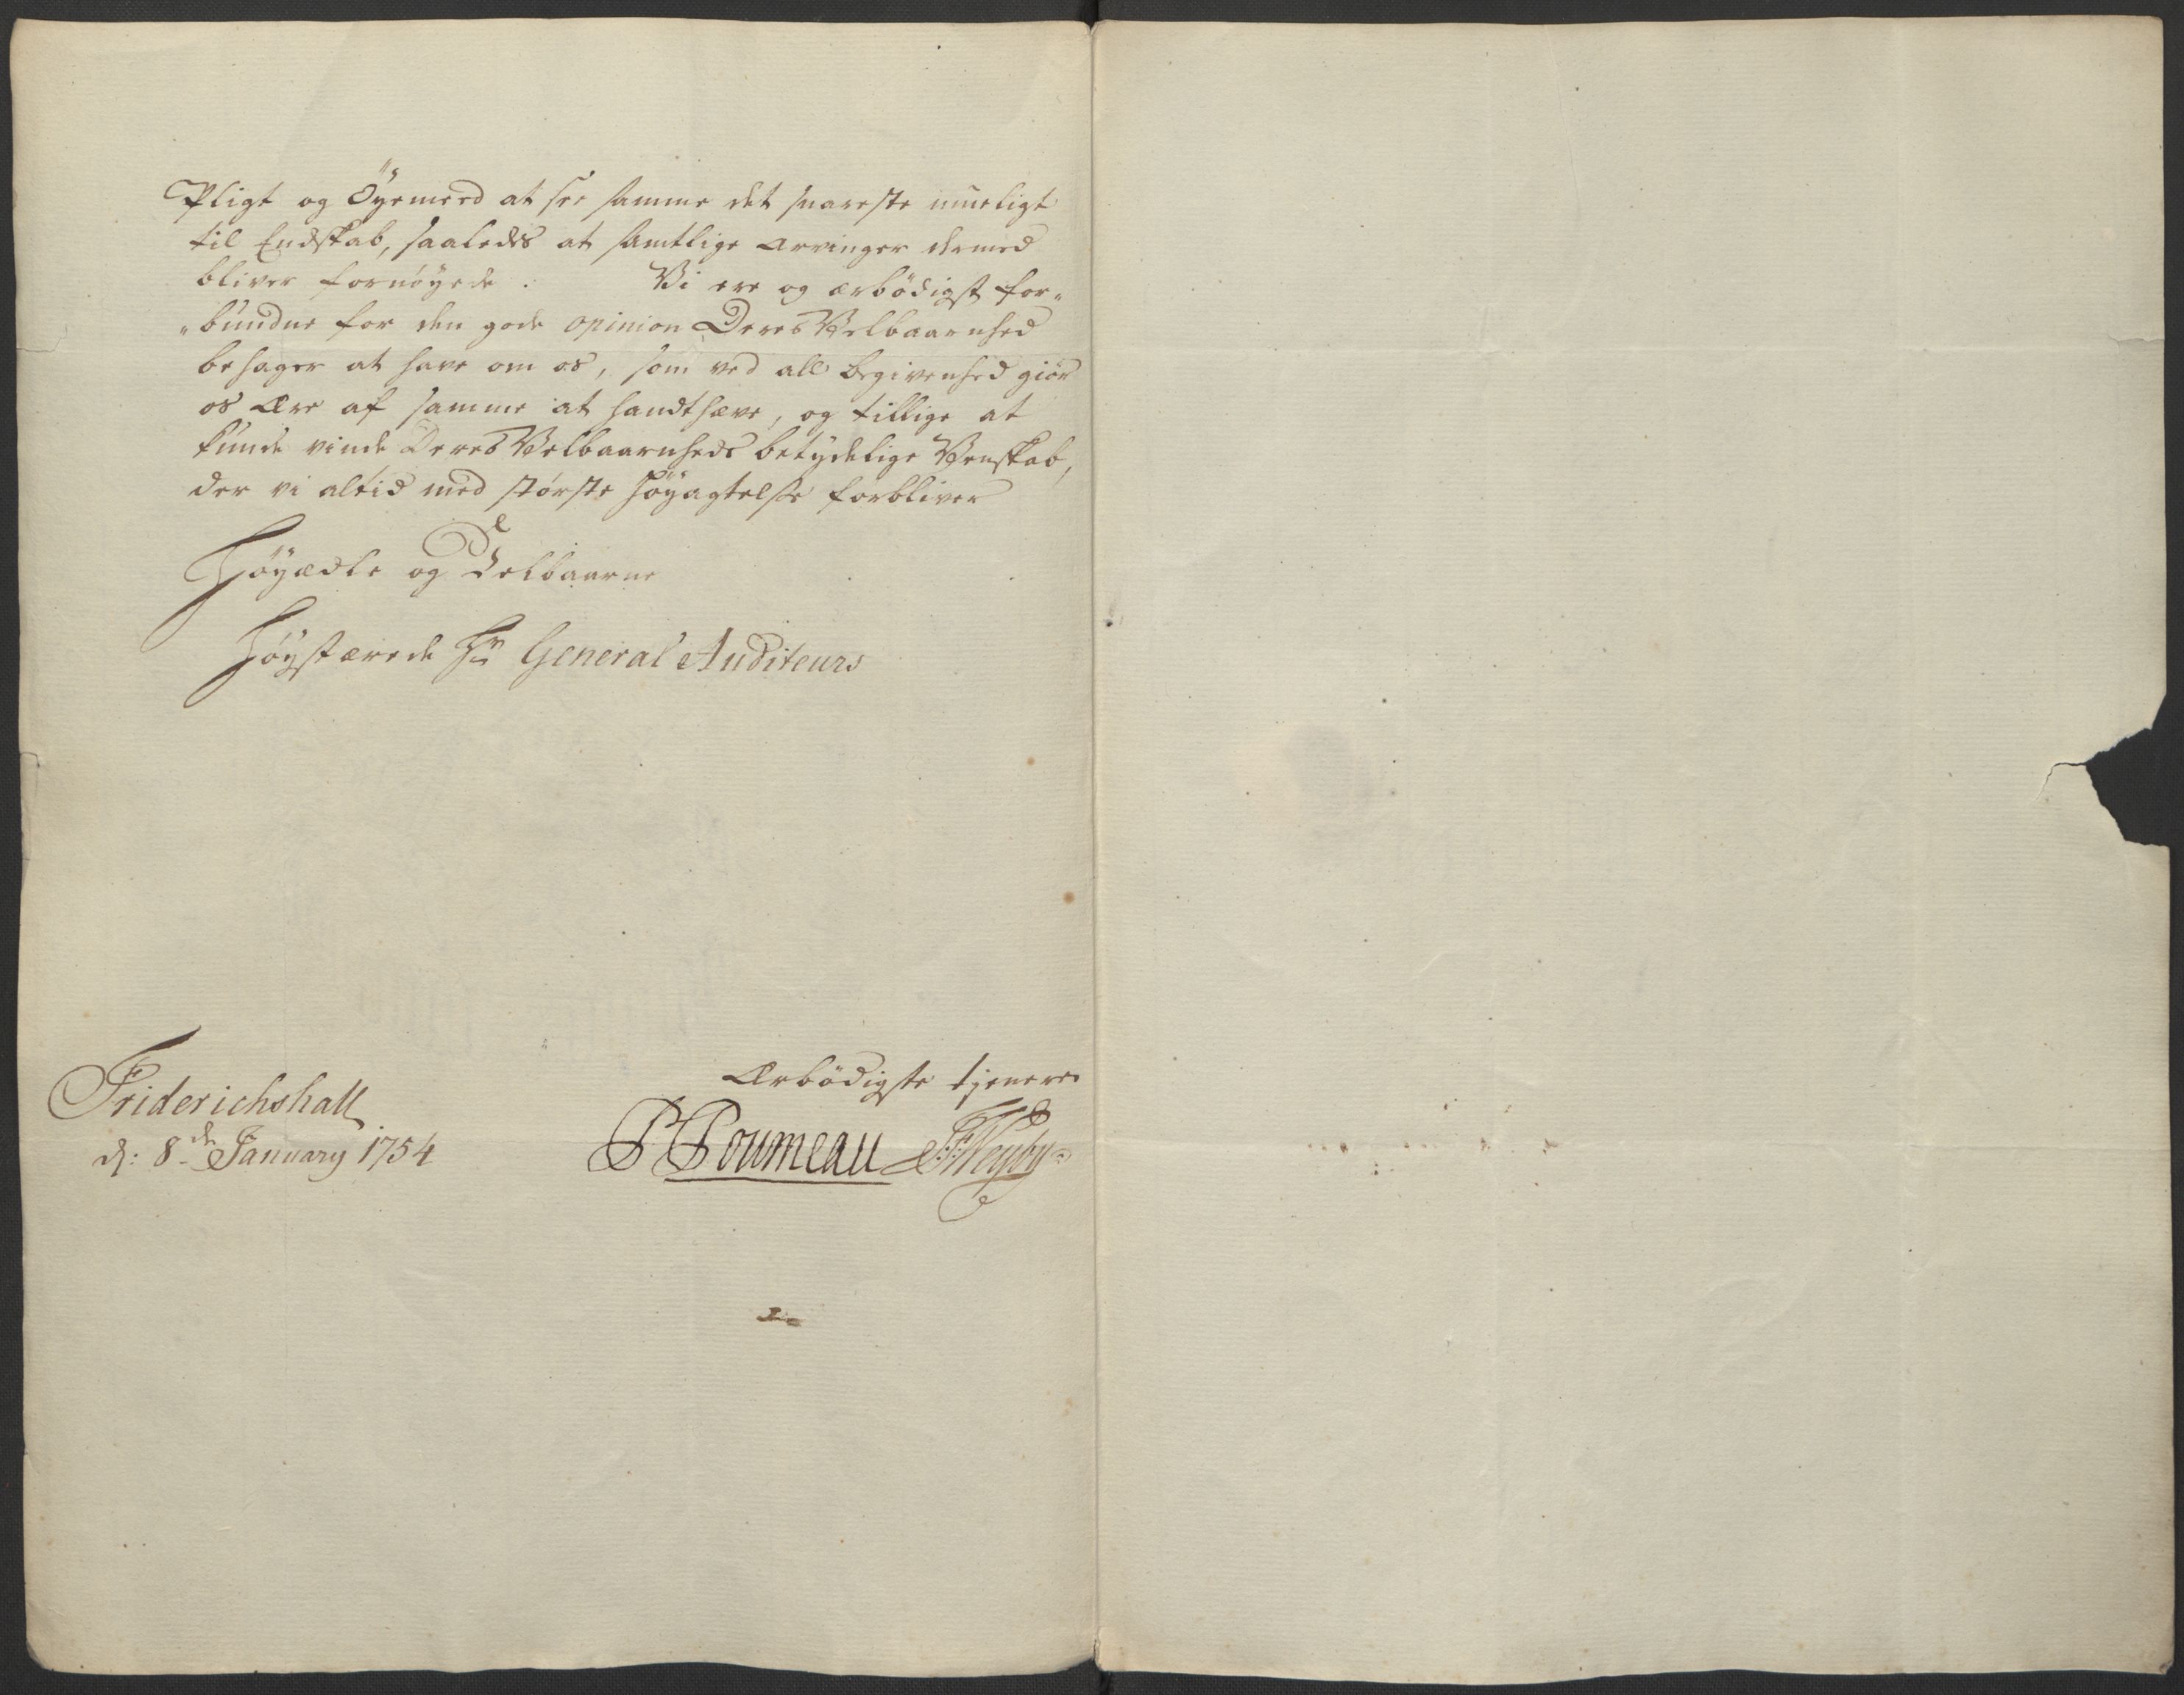 Pligt og Öyemeed at see samme det snareste mueligt
til Endskab, saaledes at samtlige Arvinger dermed
bliver fornøyede. Vi ere og ærbödigst for„
„bundne for den gode opinion Deres Velbaarnhed
behager at have om os, som ved all begivenhed giör
os Ære af samme at handthæve, og tillige at
kunde vinde Deres Velbaarnheds betydelige Venskab,
der vi altid med störste Höyagtelse forbliver
Höyædle og Velbaarne
Höystærede Hr General Auditeurs
Ærbödigste tjenere
Friderichshall
d: 8de January 1754
P Poumeau FWeyby